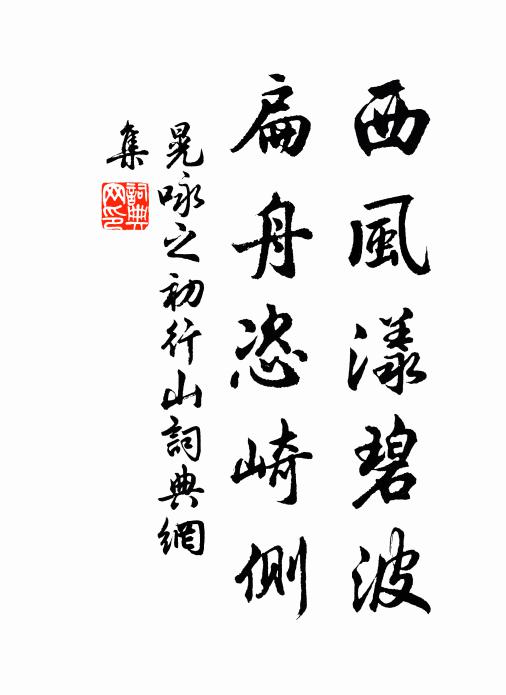 西風漾碧波
扁舟恣崎側
晁咏之初行山詞典網
集
詞典网印